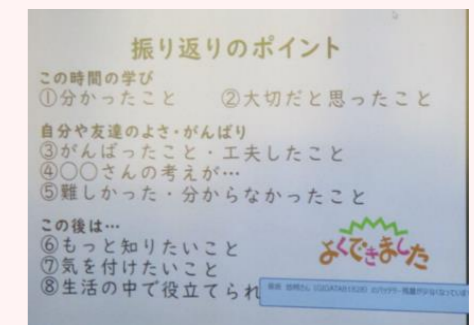 振り返りのポイント
この時間の学び
①分かったこと　②大切だと思ったこと
自分や友達のよさ・がんばり
③がんばったこと・工夫したこと
④○○さんの考えが…
⑤難しかった・分からなかったこと
この後は…
⑥もっと知りたいこと
⑦気を付けたいこと
⑧生活の中で役立てられ
よくできました